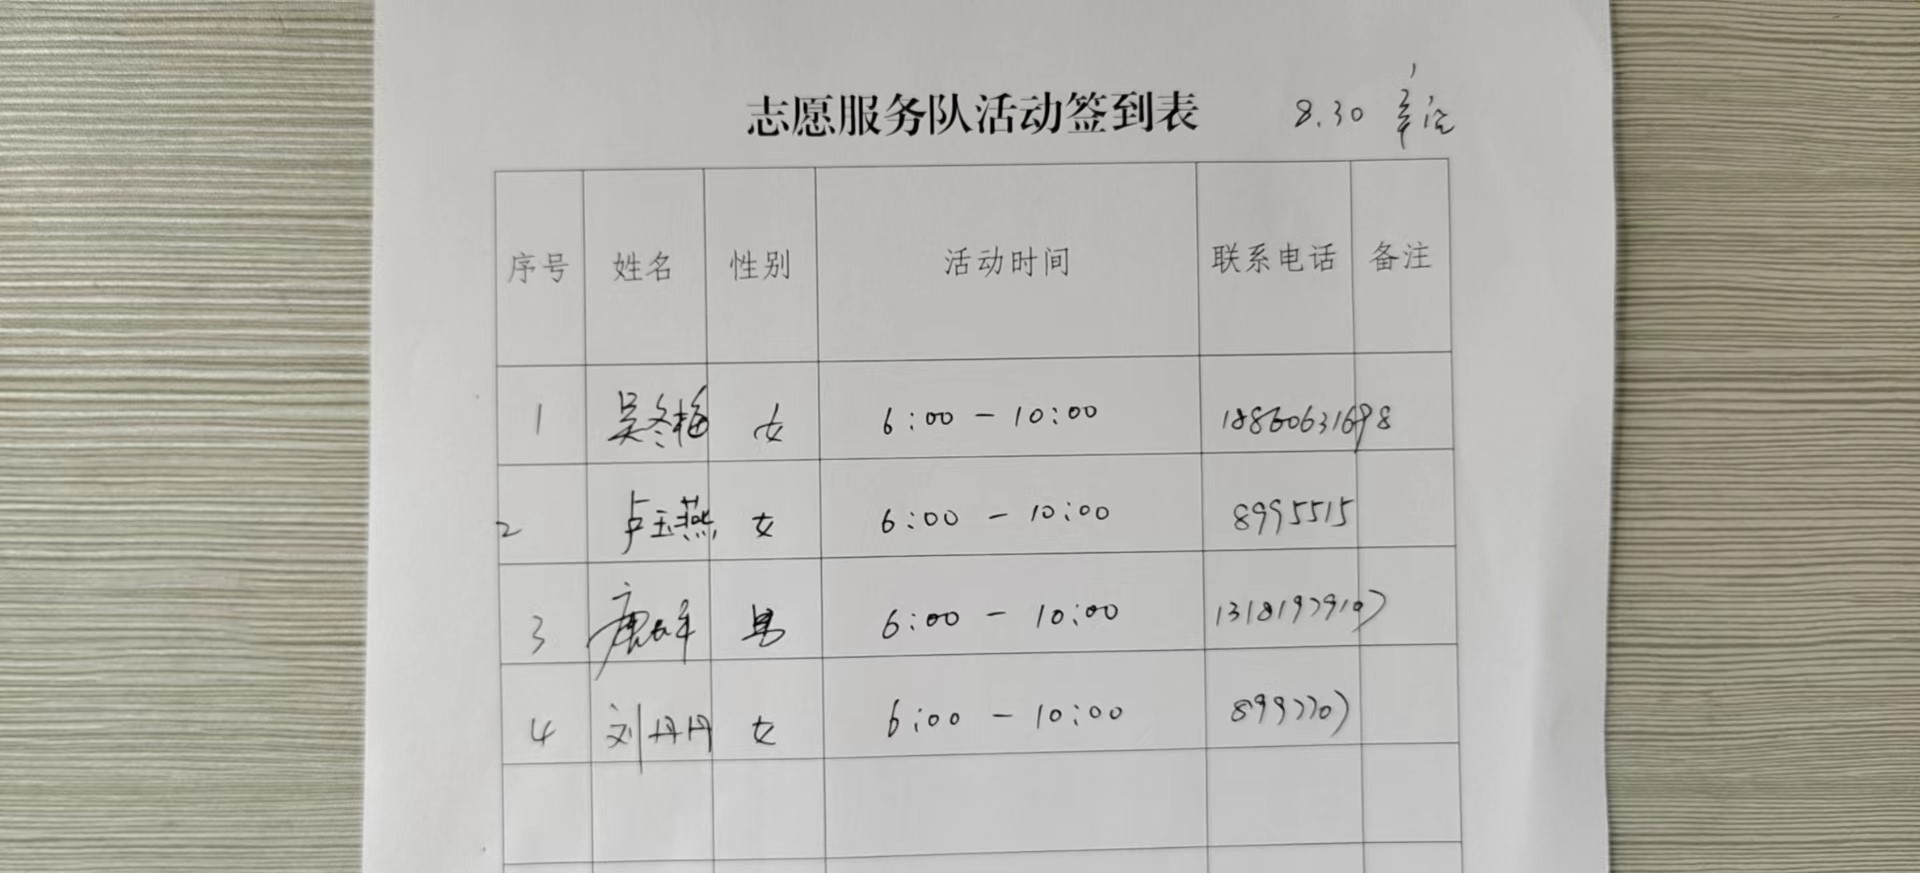 志愿服务队活动签到表 8.30
序号 姓名 性别 活动时间 联系电话 备注
1 吴冬梅 女 6:00 - 10:00 18860631698
2 卢玉燕 女 6:00 - 10:00 8995515
3 男 6:00 - 10:00 13181979107
4 刘丹丹 女 6:00 - 10:00 8997707